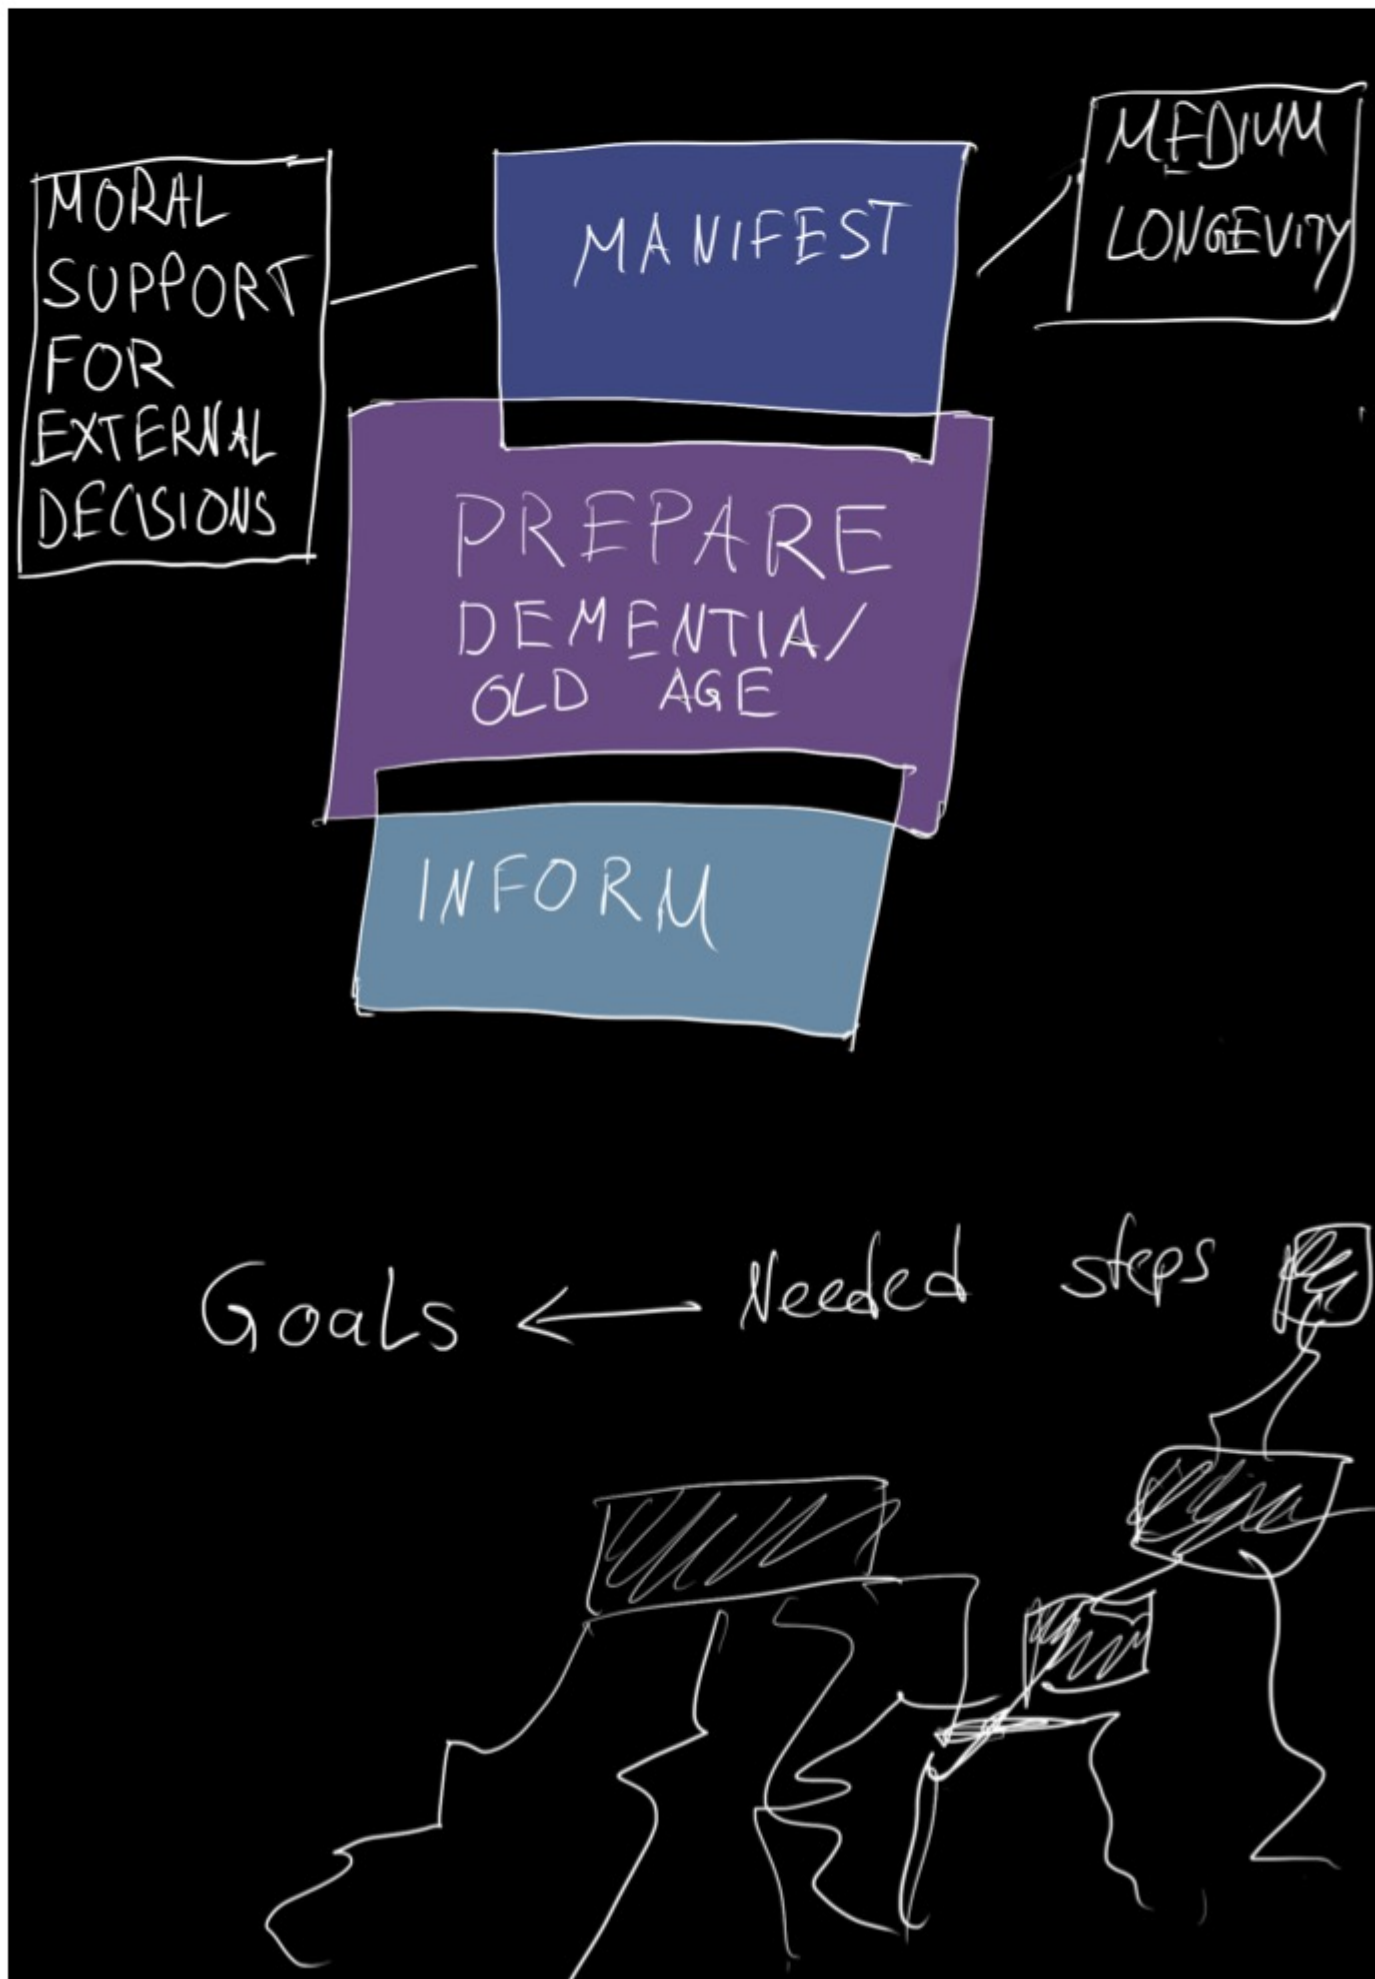 MORAL
SUPPORT
FOR
EXTERNAL
DECISIONS
MANIFEST
MEDIUM
LONGEVITY
PREPARE
DEMENTIA/
OLD AGE
INFORM
Goals ← Needed steps